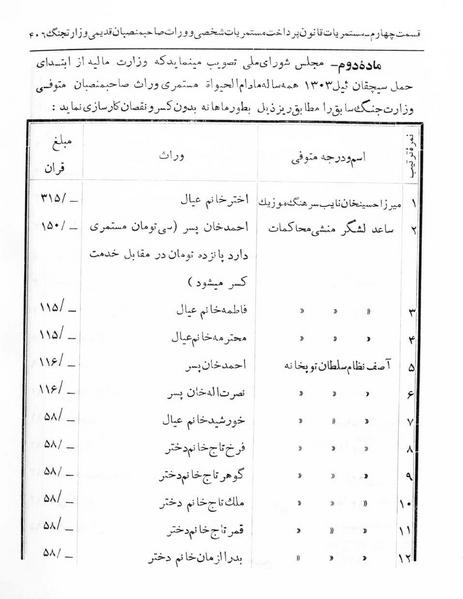 قسمت چهارم - مستمریات قانون پرداخت مستمریات شخصی و وراث صاحبمنصبان قدیمی وزارتجنگ ۴۰۶
مادهٔ دوم - مجلس شورای ملی تصویب مینماید که وزارت مالیه از ابتدای
حمل سیچقان ئیل ۱۳۰۳ همه ساله مادام الحیوة مستمری وراث صاحبمنصبان متوفی
وزارت جنگ سابق را مطابق ریز ذیل بطور ماهانه بدون کسر و نقصان کارسازی نماید :
نمره ترتیب اسم و درجه متوفی وراث مبلغ
قران
۱ میرزا حسینخان نایب سرهنگ موزیک اختر خانم عیال ۳۱۵/ــ
۲ ساعد لشگر منشی محاکمات احمد خان پسر (سی تومان مستمری ۱۵۰/ــ
دارد پانزده تومان در مقابل خدمت
کسر میشود)
۳ » » » فاطمه خانم عیال ۱۱۵/ــ
۴ » » » محترمه خانم عیال ۱۱۵/ــ
۵ آصف نظام سلطان توپخانه احمد خان پسر ۱۱۶/ــ
۶ » » » نصرت اله خان پسر ۱۱۶/ــ
۷ » » » خورشید خانم عیال ۵۸/ــ
۸ » » » فرخ تاج خانم دختر ۵۸/ــ
۹ » » » گوهر تاج خانم دختر ۵۸/ــ
۱۰ » » » ملک تاج خانم دختر ۵۸/ــ
۱۱ » » » قمر تاج خانم دختر ۵۸/ــ
۱۲ » » » بدرالزمان خانم دختر ۵۸/ــ